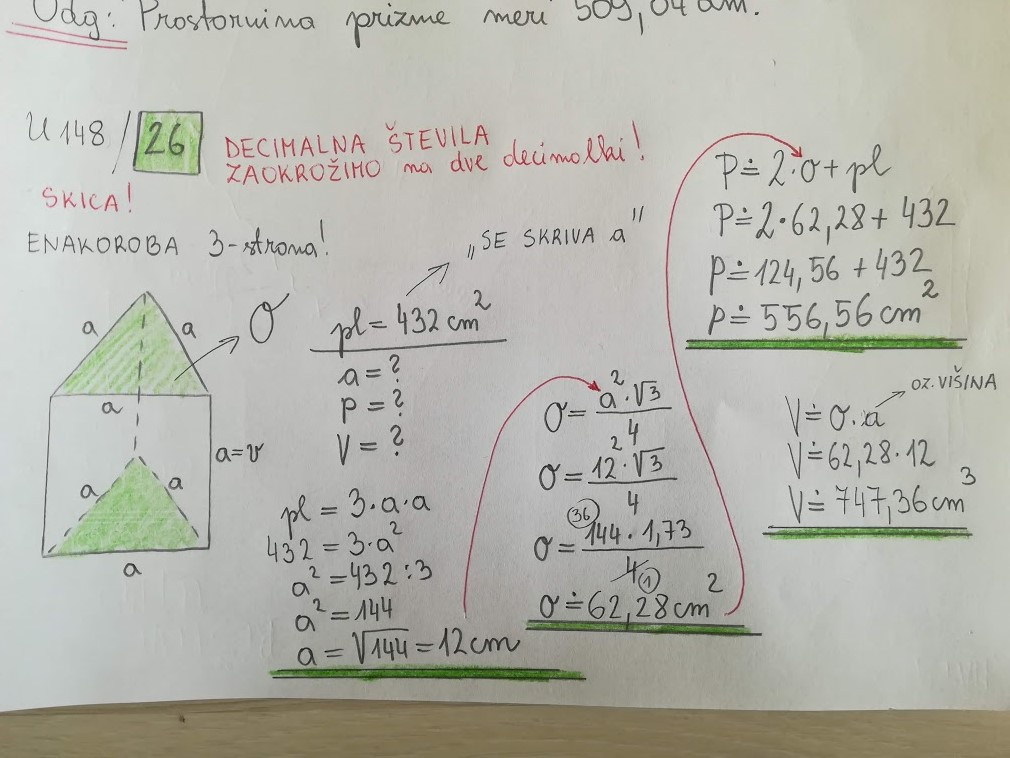 Odg: Prostornina prizme meri 509,04 dm.
U 148 / 26
DECIMALNA ŠTEVILA
ZAOKROŽIMO na dve decimalki!
SKICA!
ENAKOROBA 3-strana!
a
a
O
a
a=v
a
a
a
„SE SKRIVA a"
pl = 432 cm²
a = ?
P = ?
V = ?
pl = 3·a·a
432 = 3·a²
a² = 432:3
a² = 144
a = √144 = 12 cm
O = a²·√3 / 4
O = 12²·√3 / 4
36
O = 144·1,73 / 4
1
O ≐ 62,28 cm²
P ≐ 2·O + pl
P ≐ 2·62,28 + 432
P ≐ 124,56 + 432
P ≐ 556,56 cm²
OZ. VIŠINA
V ≐ O·a
V ≐ 62,28·12
V ≐ 747,36 cm³